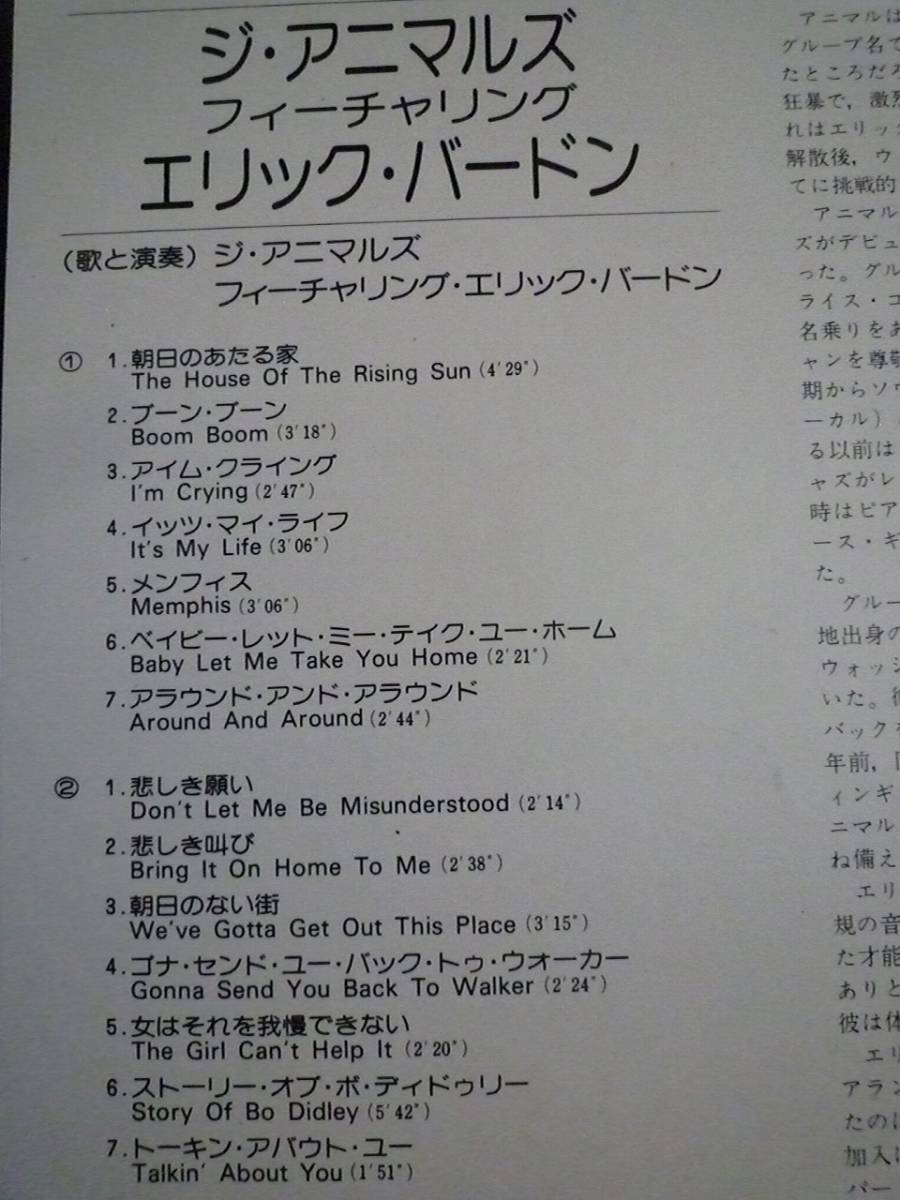 ジ・アニマルズ
フィーチャリング
エリック・バードン
(歌と演奏) ジ・アニマルズ
フィーチャリング・エリック・バードン
① 1.朝日のあたる家
The House Of The Rising Sun (4'29")
2.ブーン・ブーン
Boom Boom (3'18")
3.アイム・クライング
I'm Crying (2'47")
4.イッツ・マイ・ライフ
It's My Life (3'06")
5.メンフィス
Memphis (3'06")
6.ベイビー・レット・ミー・テイク・ユー・ホーム
Baby Let Me Take You Home (2'21")
7.アラウンド・アンド・アラウンド
Around And Around (2'44")
② 1.悲しき願い
Don't Let Me Be Misunderstood (2'14")
2.悲しき叫び
Bring It On Home To Me (2'38")
3.朝日のない街
We've Gotta Get Out This Place (3'15")
4.ゴナ・センド・ユー・バック・トゥ・ウォーカー
Gonna Send You Back To Walker (2'24")
5.女はそれを我慢できない
The Girl Can't Help It (2'20")
6.ストーリー・オブ・ボ・ディドゥリー
Story Of Bo Didley (5'42")
7.トーキン・アバウト・ユー
Talkin' About You (1'51")
アニマルは
グループ名で
たところだろ
狂暴で，激烈
れはエリッ
解散後，ウ
てに挑戦的
アニマル
ズがデビュ
った。グル
ライス・コ
名乗りをあ
ャンを尊敬
期からソウ
ーカル）
る以前は
ャズがレ
時はピア
ース・ギ
た。
グルー
地出身の
ウォッシ
いた。彼
バックを
年前，
ィンギ
ニマル
ね備え
エリ
規の音
た才能
ありと
彼は体
エリ
アラン
たのに
加入に
バー